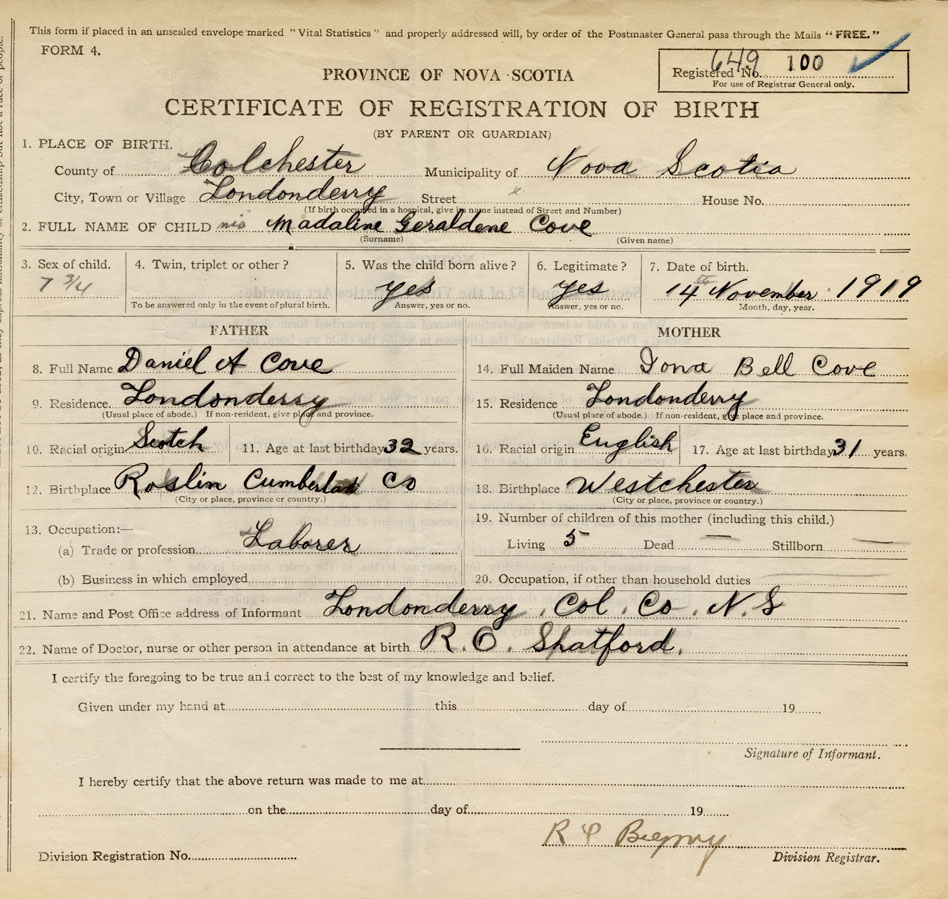 This form if placed in an unsealed envelope marked "Vital Statistics" and properly addressed will, by order of the Postmaster General pass through the Mails "FREE."
FORM 4.
649 100
Registered No.
For use of Registrar General only.
PROVINCE OF NOVA SCOTIA
CERTIFICATE OF REGISTRATION OF BIRTH
(BY PARENT OR GUARDIAN)
1. PLACE OF BIRTH.
County of Colchester Municipality of Nova Scotia
City, Town or Village Londonderry Street House No.
(If birth occurred in a hospital, give its name instead of Street and Number)
2. FULL NAME OF CHILD Madaline Geraldene Cove
(Surname) (Given name)
3. Sex of child. 4. Twin, triplet or other? 5. Was the child born alive? 6. Legitimate? 7. Date of birth.
yes yes 14th November 1919
To be answered only in the event of plural birth. Answer, yes or no. Answer, yes or no. Month, day, year.
FATHER MOTHER
8. Full Name Daniel A Cove 14. Full Maiden Name Iona Bell Cove
9. Residence. Londonderry 15. Residence Londonderry
(Usual place of abode.) If non-resident, give place and province. (Usual place of abode.) If non-resident, give place and province.
10. Racial origin Scotch 11. Age at last birthday 32 years. 16. Racial origin English 17. Age at last birthday 31 years.
12. Birthplace Roslin Cumberland Co 18. Birthplace Westchester
(City or place, province or country.) (City or place, province or country.)
13. Occupation:— 19. Number of children of this mother (including this child.)
(a) Trade or profession Laborer Living 5 Dead — Stillborn —
(b) Business in which employed 20. Occupation, if other than household duties
21. Name and Post Office address of Informant Londonderry. Col. Co. N.S
22. Name of Doctor, nurse or other person in attendance at birth R. O. Shatford.
I certify the foregoing to be true and correct to the best of my knowledge and belief.
Given under my hand at this day of 19
Signature of Informant.
I hereby certify that the above return was made to me at
on the day of 19
Division Registration No. Division Registrar.